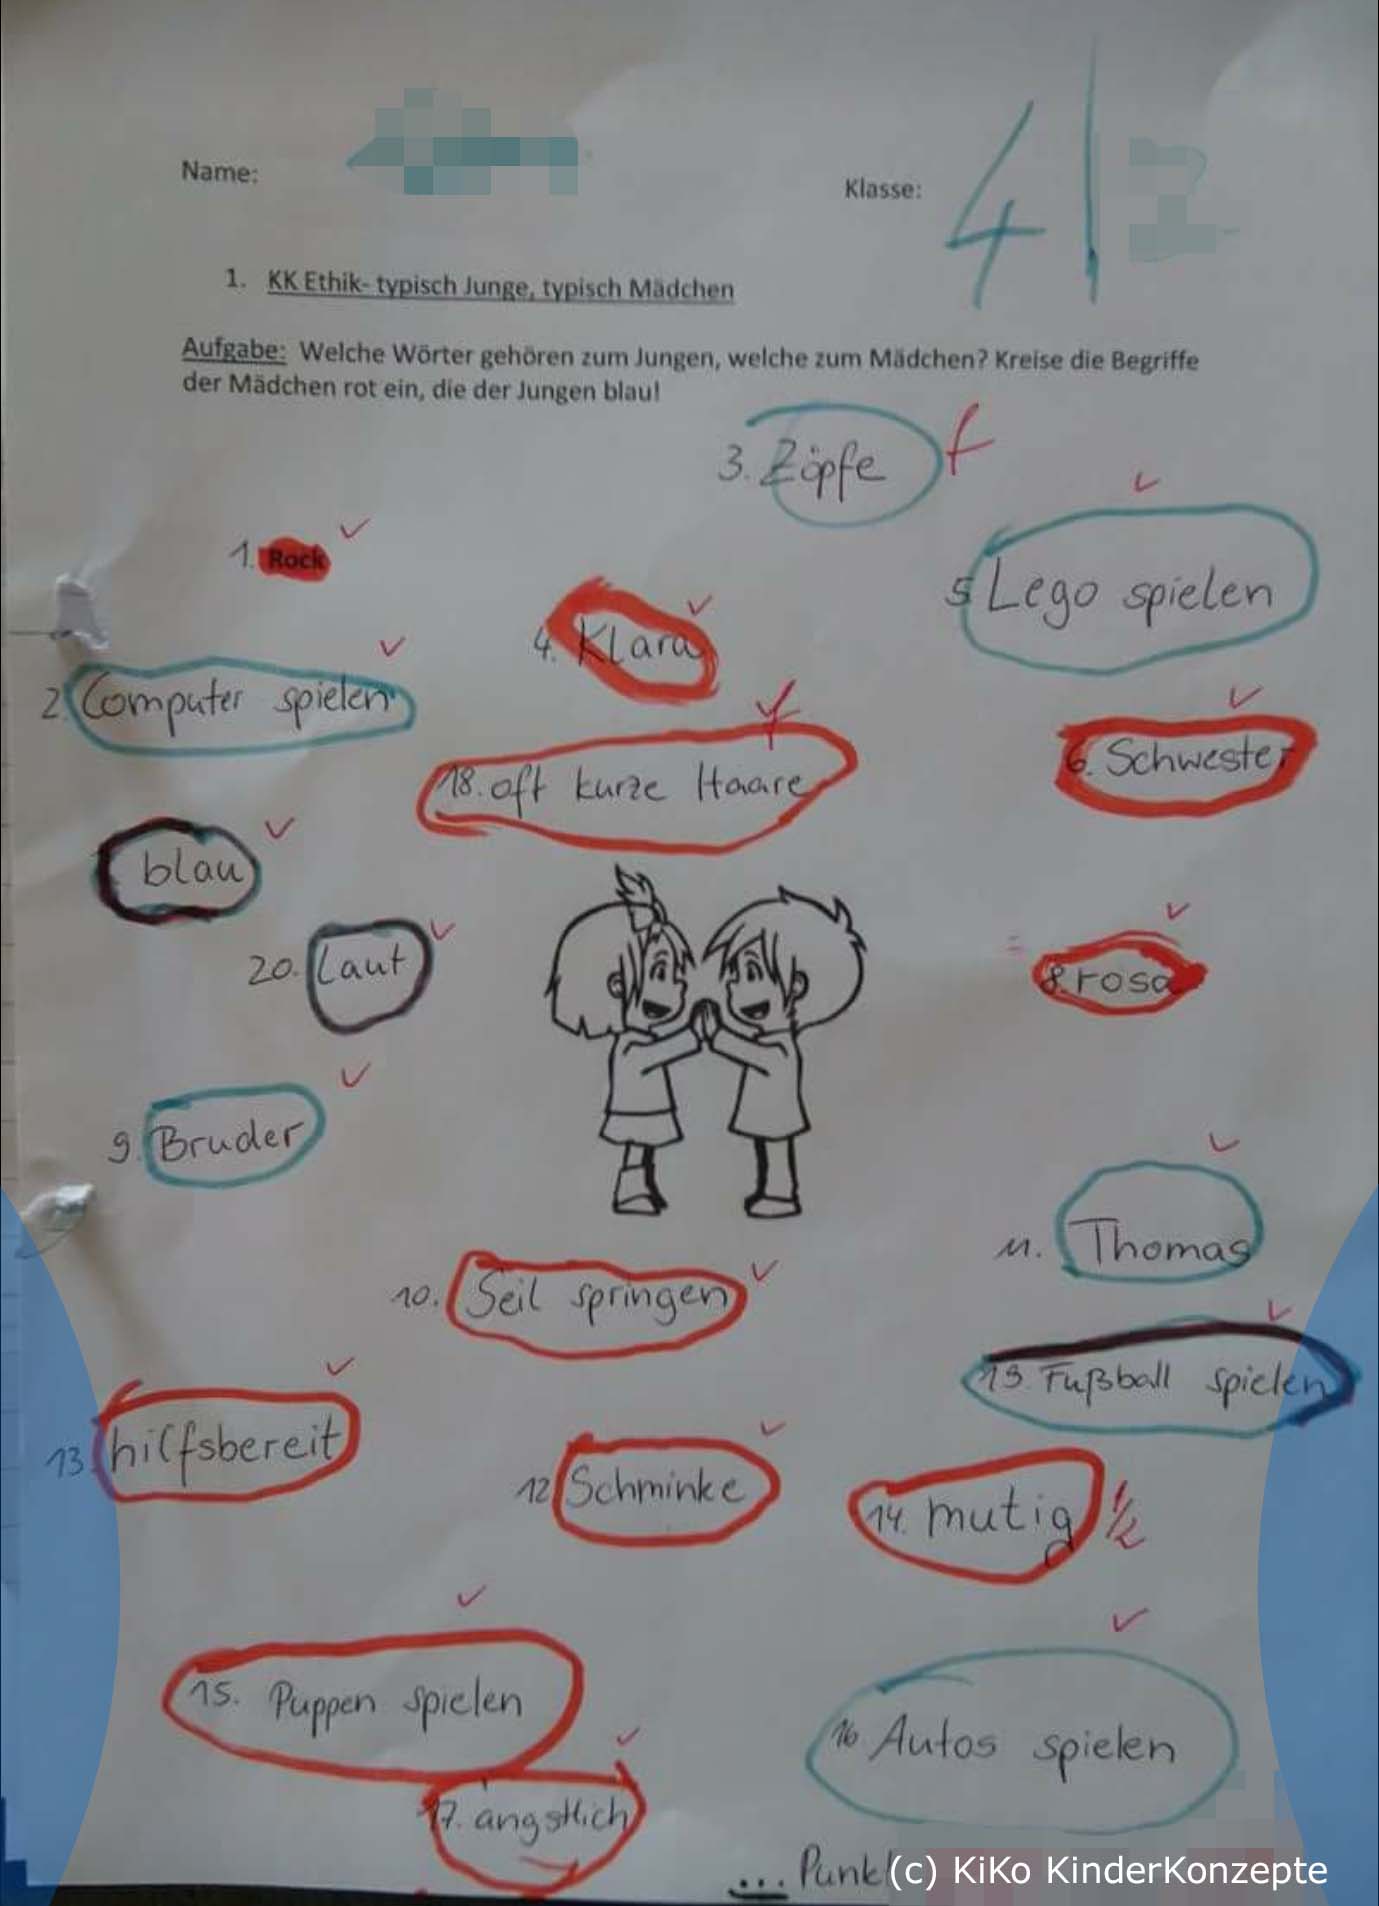 Name:
Klasse: 4
1. KK Ethik- typisch Junge, typisch Mädchen
Aufgabe: Welche Wörter gehören zum Jungen, welche zum Mädchen? Kreise die Begriffe
der Mädchen rot ein, die der Jungen blau!
3. Zöpfe f
1. Rock
5 Lego spielen
4. Klara
2. Computer spielen
18. oft kurze Haare f
6. Schwester
blau
20. Laut
8. rosa
9. Bruder
11. Thomas
10. Seil springen
19. Fußball spielen
13. hilfsbereit
12 Schminke
14. mutig 1/2
15. Puppen spielen
16 Autos spielen
17. ängstlich
... Punkt
(c) KiKo KinderKonzepte